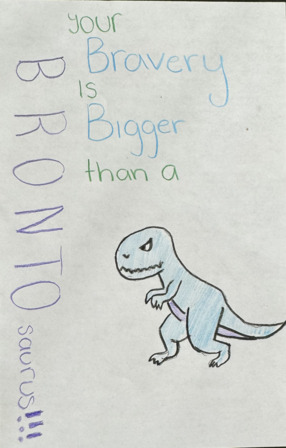 your
Bravery
is
Bigger
than a
BRONTOsaurus!!!